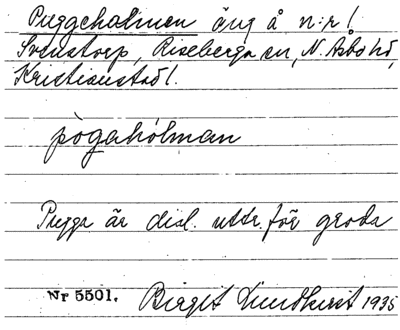 Puggeholmen äng å n:r 1
Svenstorp, Riseberga sn, N. Åsbo hd,
Kristianstad l.
pògahòlman
Pugga är dial. uttr. för groda
Nr 5501. Birgit Lundkvist 1935